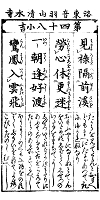 洛東音羽山清水寺
第四十八小吉
見祿隔前溪
勞心休更迷
一朝逢好渡
鸞鳳入雲飛